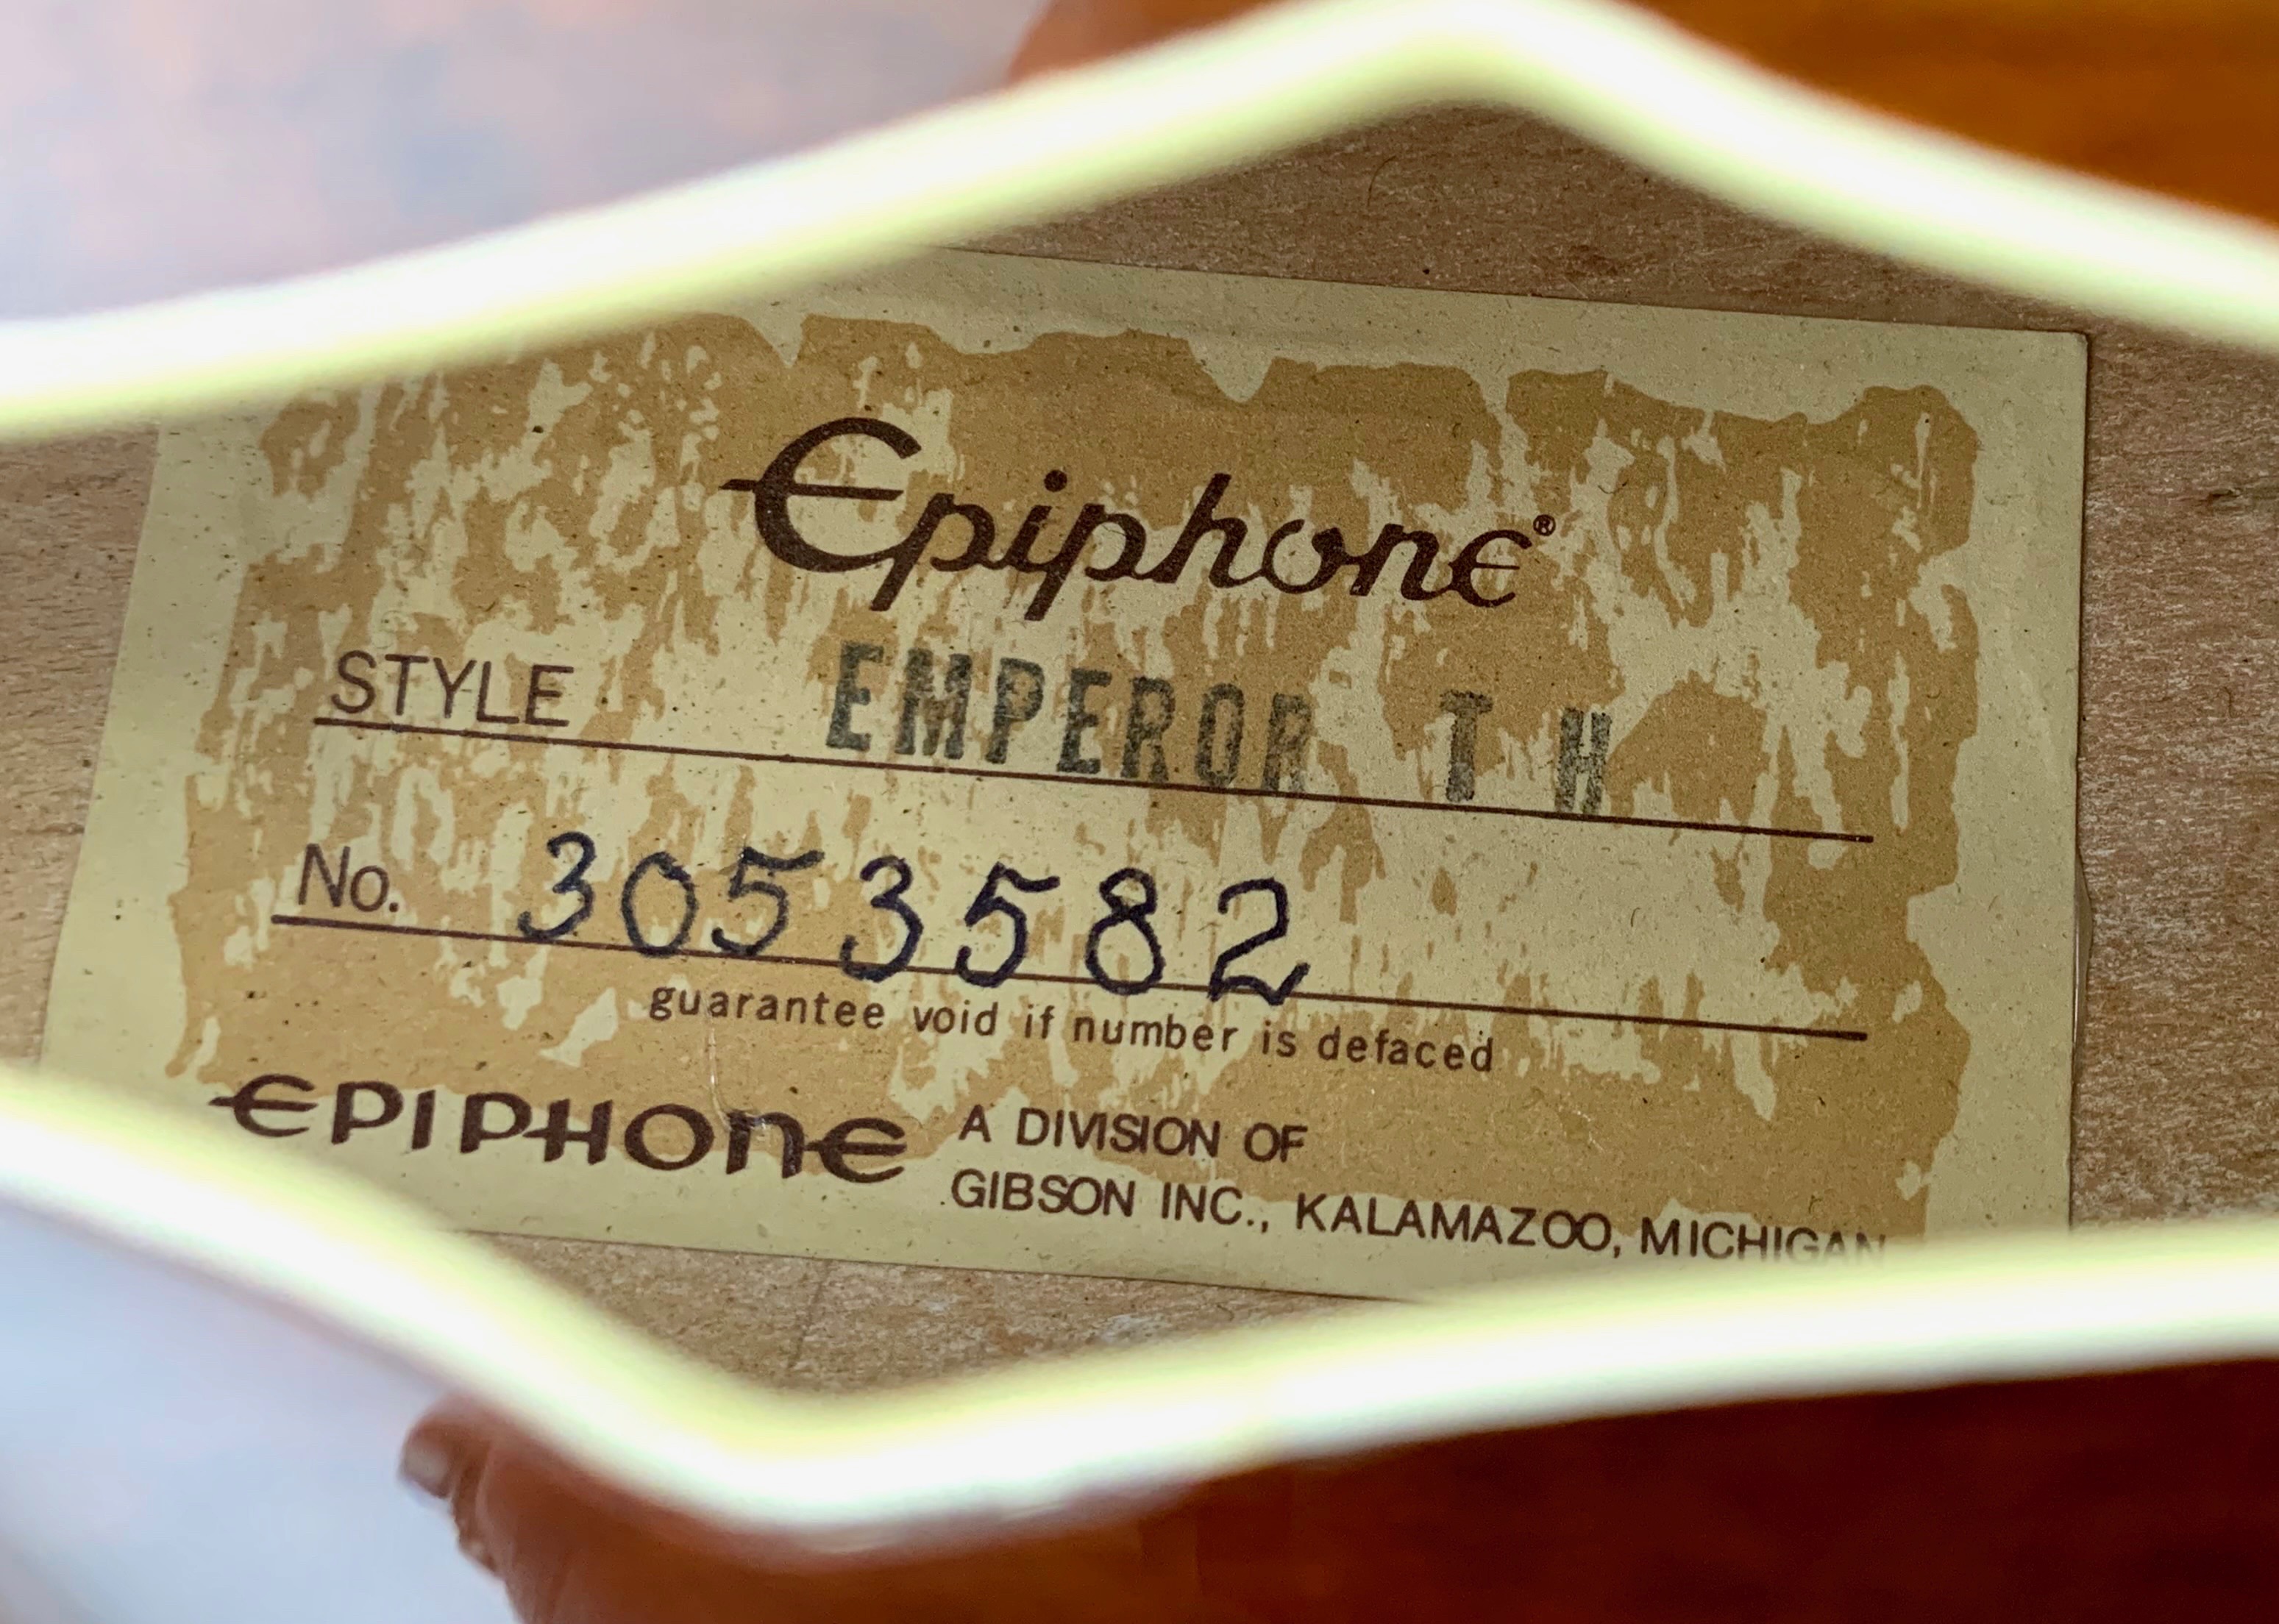 Epiphone®
STYLE EMPEROR T H
No. 3053582
guarantee void if number is defaced
EPIPHONE A DIVISION OF
GIBSON INC., KALAMAZOO, MICHIGAN